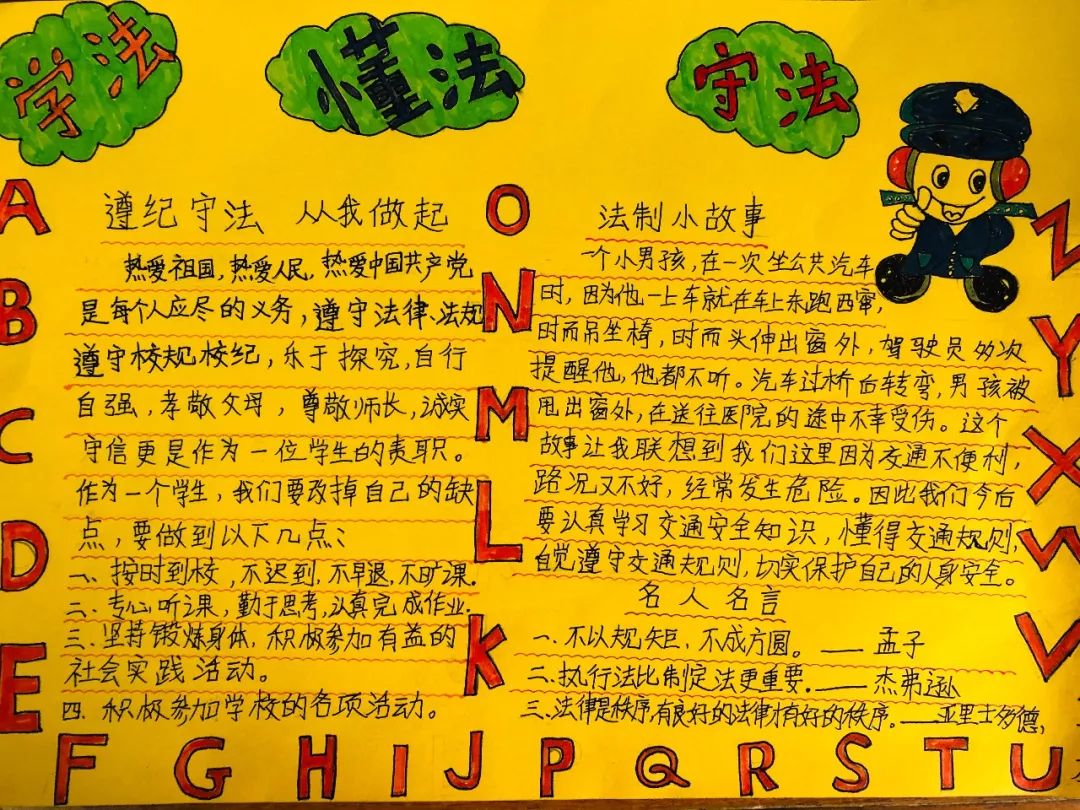 学法
懂法
守法
遵纪守法 从我做起
热爱祖国,热爱人民,热爱中国共产党
是每个人应尽的义务,遵守法律、法规
遵守校规校纪,乐于探究,自行
自强,孝敬父母,尊敬师长,诚实
守信更是作为一位学生的责职。
作为一个学生,我们要改掉自己的缺
点,要做到以下几点:
一、按时到校,不迟到,不早退,不旷课.
二、专心听课,勤于思考,认真完成作业.
三.坚持锻炼身体,积极参加有益的
社会实践活动。
四.积极参加学校的各项活动。
法制小故事
一个小男孩,在一次坐公共汽车
时,因为他一上车就在车上东跑西窜,
时而吊坐椅,时而头伸出窗外,驾驶员多次
提醒他,他都不听。汽车过桥后转弯,男孩被
甩出窗外,在送往医院的途中不幸受伤。这个
故事让我联想到我们这里因为交通不便利,
路况又不好,经常发生危险。因此我们今后
要认真学习交通安全知识,懂得交通规则,
自觉遵守交通规则,切实保护自己的人身安全。
名人名言
一.不以规矩,不成方圆。——孟子
二.执行法比制定法更重要.——杰弗逊
三.法律是秩序,有良好的法律才有好的秩序。——亚里士多德,
A
B
C
D
E
F G H I J P Q R S T U
O
N
M
L
K
Z
Y
X
W
V